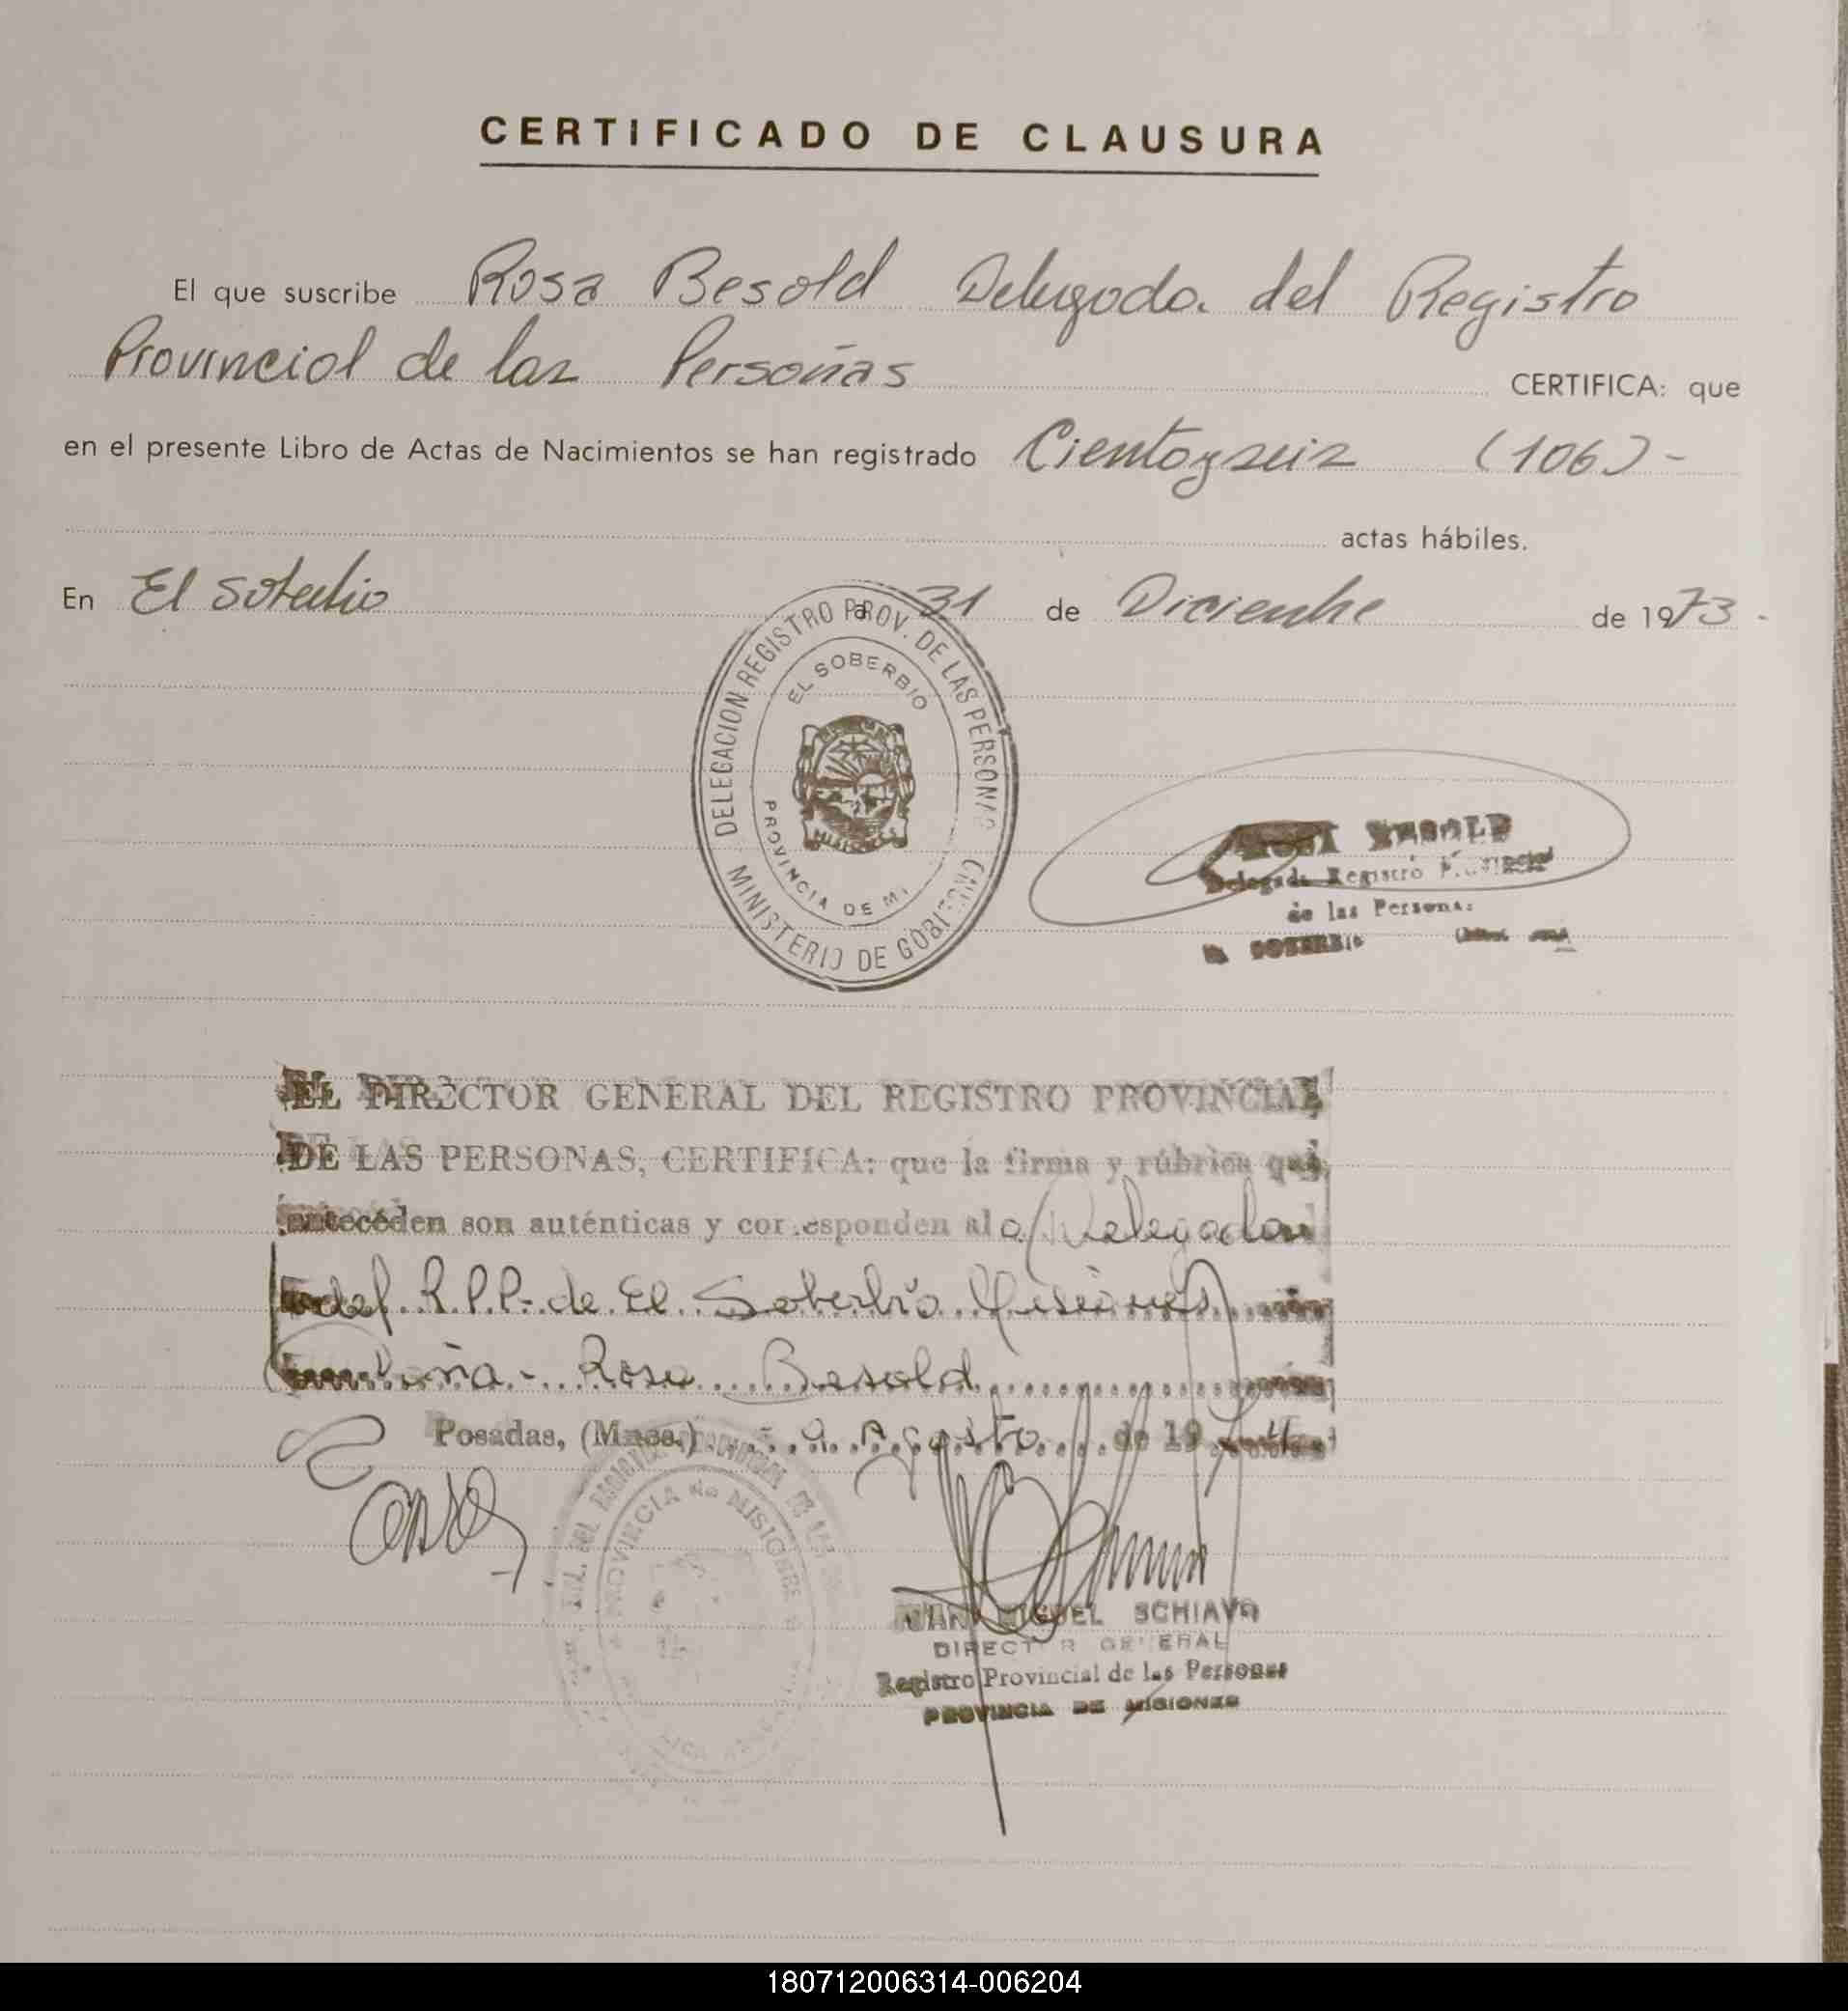 CERTIFICADO DE CLAUSURA
El que suscribe Rosa Besold Delegada del Registro
Provincial de las Personas CERTIFICA: que
en el presente Libro de Actas de Nacimientos se han registrado Ciento y seis (106) -
actas hábiles.
En El Soberbio a 31 de Diciembre de 1973 -
DELEGACION REGISTRO PROV. DE LAS PERSONAS
EL SOBERBIO
MISIONES
PROVINCIA DE
MINISTERIO DE GOBIERNO
BESOLD
Delegada Registro Provincial
de las Personas
SOBERBIO
EL DIRECTOR GENERAL DEL REGISTRO PROVINCIAL
DE LAS PERSONAS, CERTIFICA: que la firma y rúbrica que
anteceden son auténticas y corresponden al a Delegada
del R.P.P. de El Soberbio Misiones
Doña - Rosa Besold
Posadas, (Mnes.) Agosto de 19
PROVINCIA de MISIONES
JUAN MIGUEL SCHIAVO
DIRECTOR GENERAL
Registro Provincial de las Personas
PROVINCIA DE MISIONES
180712006314-006204